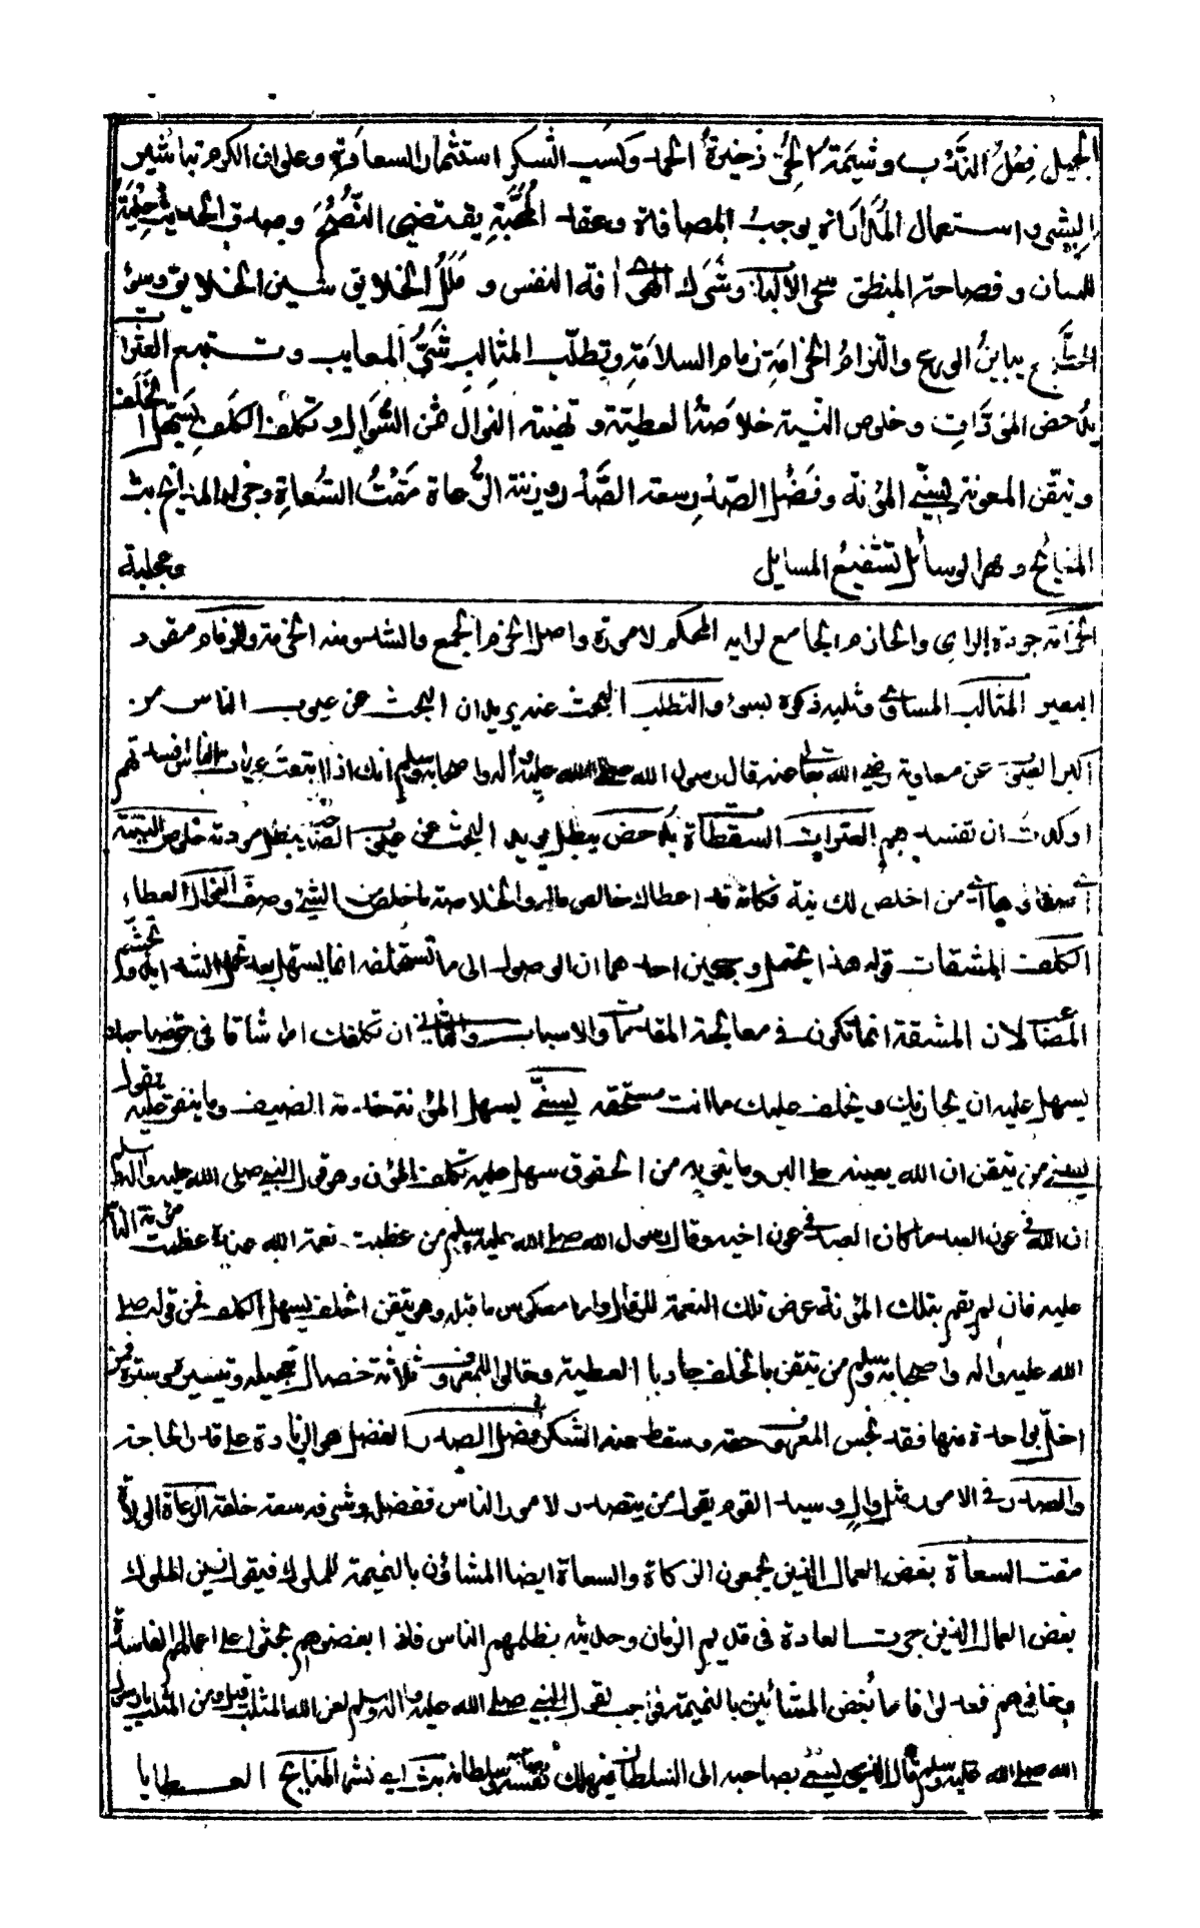 الجميل فِعْلُ النَّدْب وشيمَةُ الحُرِّ ذخيرةُ الحمد وكسب الشكر استثمار السعادة وعنوان الكرم تباشير
البِشْر واستعمال المُدَارَاة يوجبُ المصافاة وعقد المحَبَّةِ يقتضي النُّصْحَ وصدق الحديث حِلْيَةُ
اللسان وفصاحة المنطق سحر الألباب وشَرَكُ الهَوَى آفة النفس ومَلَلُ الخلائق شين الخلائق وسوء
الطَّمَع يباينُ الورع والتزامُ الحزامَةِ زمام السلامَةِ وتطلّب المثالبِ شَرُّ المعايب وتتبع العثرات
يُدحض المودَّاتِ وخلوص النية خلاصَةُ العطية وتهنئة النوال ثمن السُّؤال وتكلف الكلف يسهّل الخَلَف
وتيقن المعونة يُسنِّي المؤنة وفَضْلُ الصّدْرِ سعة الصَّدْر وزينة الرُّعاة مَقْتُ السُّعَاةِ وجزاء المدائح بث
المنائح ومهر الوسائل تشفيعُ المسائل ومجلبة
الحزامة جودة الراي والحازم الجامع لرايه المحكم لاموره واصل الحزم الجمع والشد ومنه الحزمة والزمام مقود
البعير المثالب المساوي وثلبه ذكره بسوء والتطلب البحث عنه يريد ان البحث عن عيوب الناس من
اكبر العيوب عن معاوية رضي الله تعالى عنه قال رسول الله صلى الله عليه وآله واصحابه وسلم انك اذا اتبعت عورات الناس افسدتهم
او كدت ان تفسدهم العثرات السقطات يدحض يبطل يريد البحث عن عيوب الصديق يبطل مودته خلوص النية
اي صفاؤها اي من اخلص لك نية فكانه قد اعطاك خالص ماله والخلاصة ما خلص من الشيء وصفا النوال العطاء
الكلف المشقات قوله هذا يحتمل وجهين احدهما ان الوصول الى ما تستخلفه انما يسهل بعد تحمل الشدائد وتجشم
المضار لان المشقة انما تكون في معالجة المقدمات والاسباب والثاني ان تكلفك امرا شاقا في حق صاحبك
يسهل عليه ان يجازيك ويخلف عليك ما انت مستحقه يسنّي يسهل المؤنة خدمة الضيف وما ينفق عليه يقول
من تيقن ان الله يعينه على البر وما ينويه من الحقوق سهل عليه تكلف المؤن وهو قول النبي صلى الله عليه وآله وسلم
ان الله في عون العبد ما كان العبد في عون اخيه وقال رسول الله صلى الله عليه وسلم من عظمت نعمة الله عنده عظمت مؤنة الناس
عليه فان لم يقم بتلك المؤنة عرض تلك النعمة للزوال واما معكوس ما قبله وهو تيقن الخلف يسهل الكلف فمن قوله صلى
الله عليه وآله واصحابه وسلم من تيقن بالخلف جاد بالعطية وقالوا للمعروف ثلاثة خصال تعجيله وتيسيره وستره فمن
اخلّ بواحدة منها فقد بخس المعروف حقه وسقط عنه الشكر فضل الصدر الفضل هو الزيادة على قدر الحاجة
والصدر في الامر وسيد القوم يقول من يتصدر لامور الناس ففضله وشرفه سعة خلقه الرعاة الولاة
مقت السعاة بغض العمال الذين يجمعون الزكاة والسعاة ايضا المشاؤن بالنميمة للملوك فيقول زين الملوك
بغض العمال الذين جرت العادة في قديم الزمان وحديثه بظلمهم الناس فاذا ابغضوهم بحثوا على اعمالهم الفاسدة
وعاقبوهم فعدلوا فاما بُغض المشّائين بالنميمة فواجب لقول النبي صلى الله عليه وآله وسلم لعن الله المثلث قيل ومن المثلث يا رسول
الله صلى الله عليه وسلم قال الذي يسعى بصاحبه الى السلطان فيهلك نفسه وصاحبه وسلطانه بث اي نشر المنائح العطايا